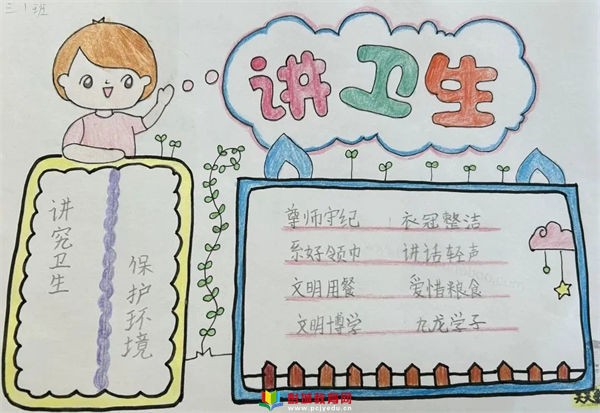 三1班
讲卫生
讲究卫生
保护环境
尊师守纪 衣冠整洁
系好领巾 讲话轻声
文明用餐 爱惜粮食
文明博学 九龙学子
www.pcjyedu.cn